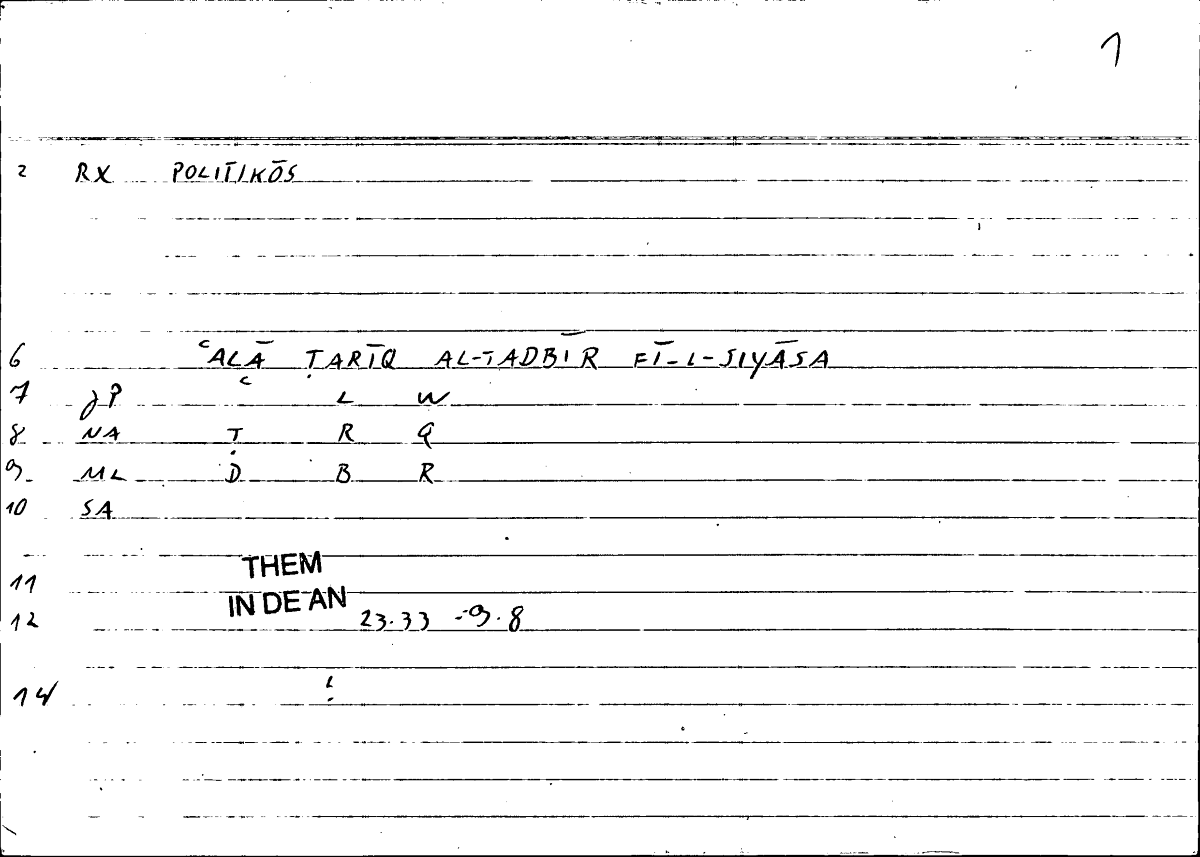 1
2 RX POLITIKŌS
6 ʿALĀ ṬARĪQ AL-TADBĪR FĪ-L-SIYĀSA
7 JP ʿ L W
8 NA Ṭ R Q
9 ML D B R
10 SA
THEM
11
IN DE AN
12 23.33 -9.8
14